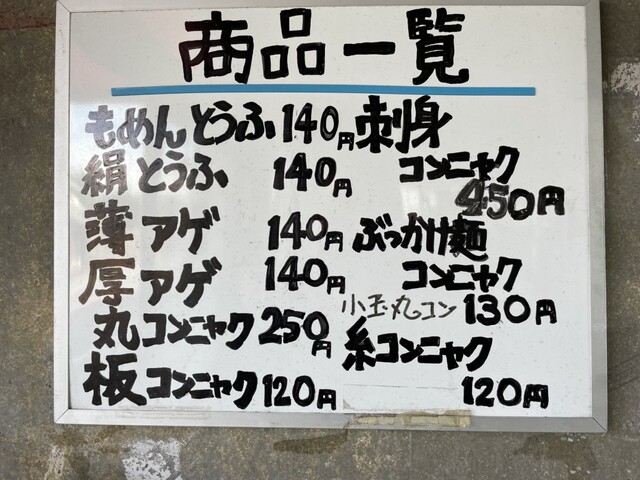 商品一覧
もめんとうふ140円
絹とうふ 140円
薄アゲ 140円
厚アゲ 140円
丸コンニャク250円
板コンニャク120円
刺身
コンニャク
450円
ぶっかけ麺
コンニャク
小玉丸コン 130円
糸コンニャク
120円